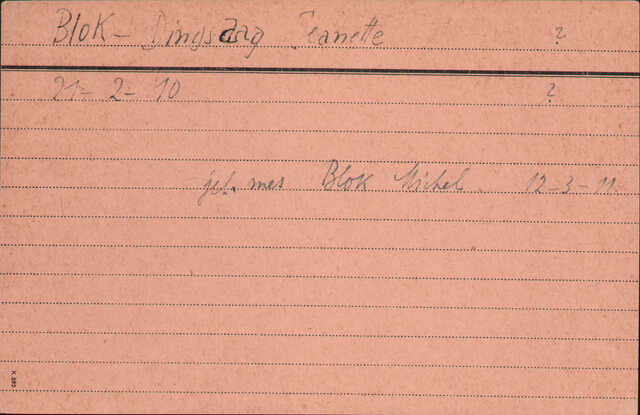 Blok - Dingsdag Jeanette ?
21 - 2 - 10 ?
gel. mes Blok Michel 12 - 3 - 11
K 385